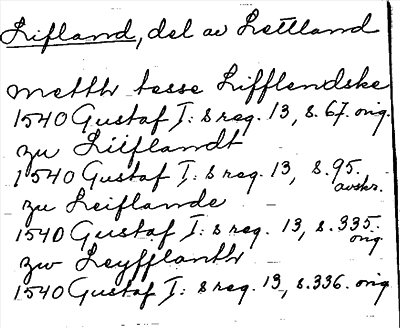 Lifland, del av Lettland
metth tesse Lifflendske
1540 Gustaf I: s reg. 13, s. 67. orig.
zu Liiflandt
1540 Gustaf I: s reg. 13, s. 95. avskr.
zu Leiflande
1540 Gustaf I: s reg. 13, s. 335. orig
zw Leyfflanth
1540 Gustaf I: s reg. 13, s. 336. orig